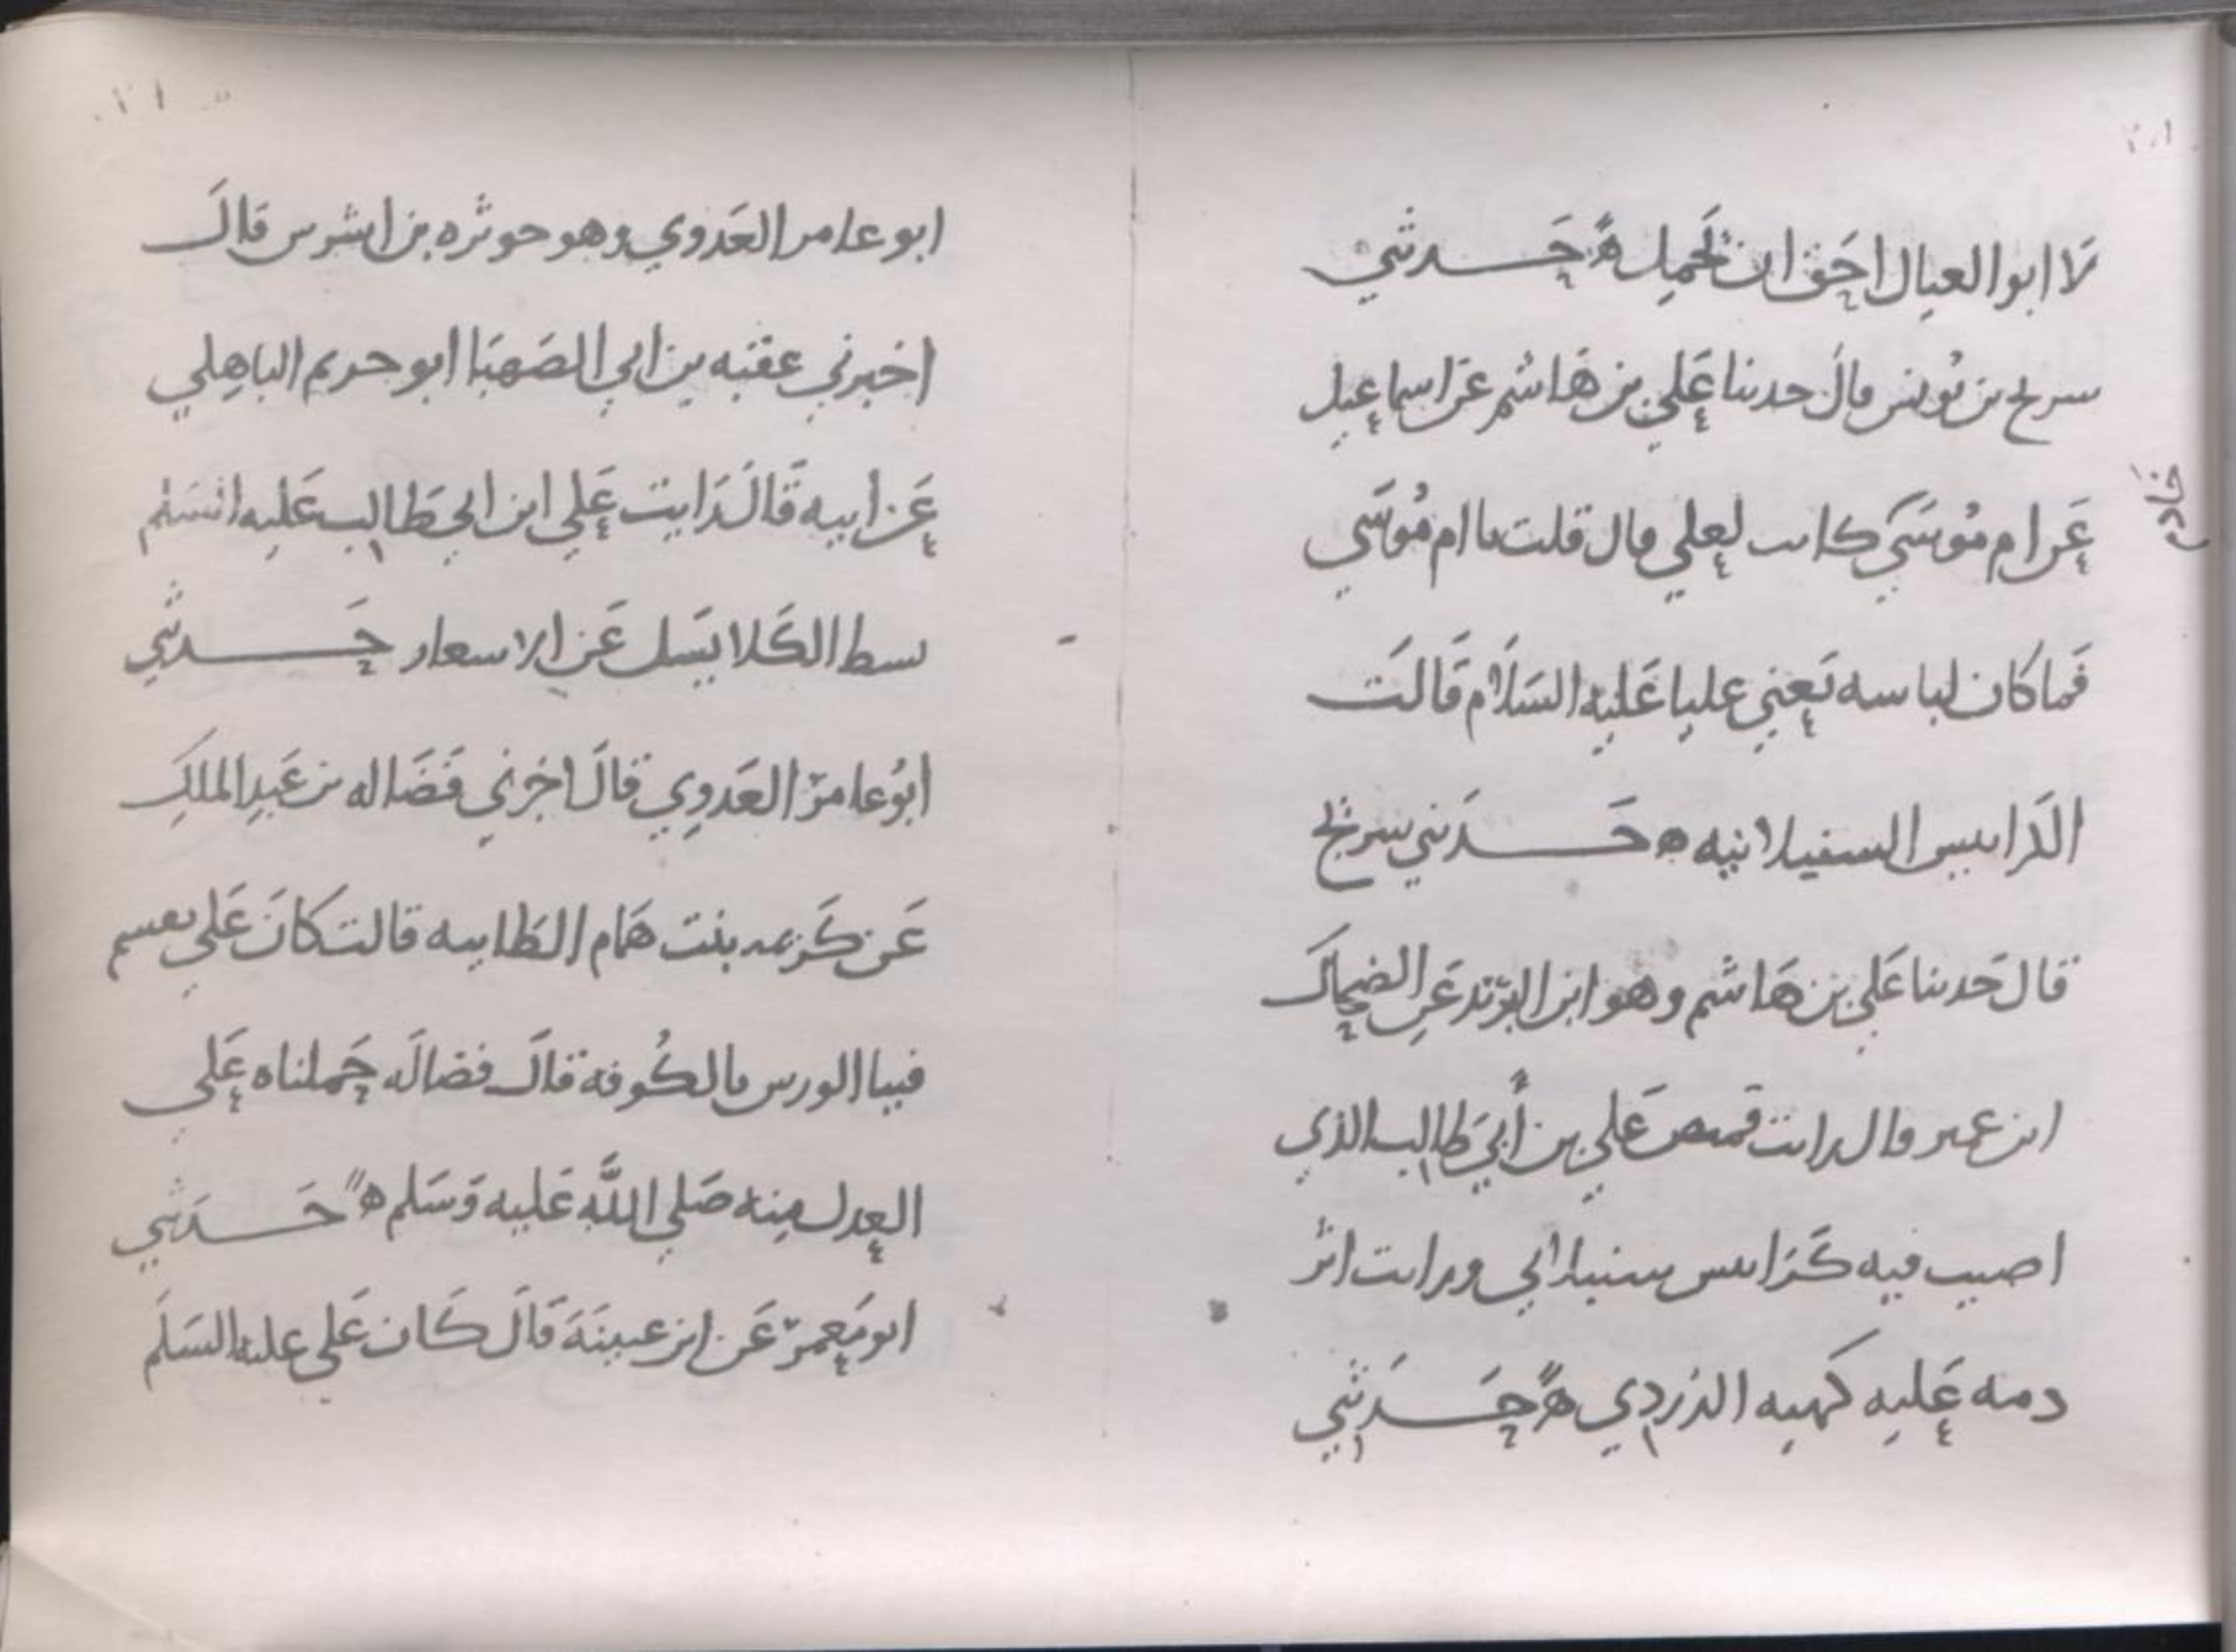 لا ابو العيال احق ان يحمل ه حدثني
سريج بن يونس قال حدثنا علي بن هاشم عن اسماعيل
عن ام موسى كانت لعلي قال قلت يا ام موسى
خادم
فما كان لباسه تعني عليا عليه السلام قالت
الكرابيس السنبلانيه ه حدثني سريج
قال حدثنا علي بن هاشم وهو ابن البريد عن الضحاك
ابن عمير قال رايت قميص علي بن أبي طالب الذي
اصيب فيه كرابيس سنبلاني ورايت اثر
دمه عليه كهيه الدردي ه حدثني
ابو عامر العدوي وهو حوثره بن اشرس قال
اخبرني عقبه بن ابي الصهبا ابو خريم الباهلي
عن أبيه قال رايت علي ابن ابي طالب عليه السلم
بسط الكلا يسل عن الاسعار حدثني
ابو عامر العدوي قال اخبرني فضاله بن عبد الملك
عن كريمه بنت همام الطاييه قالت كان علي يقسم
فينا الورس بالكوفه قال فضاله حملناه علي
العدل منه صلي الله عليه وسلم ه حدثني
ابو معمر عن ابن عيينة قال كان علي عليه السلم